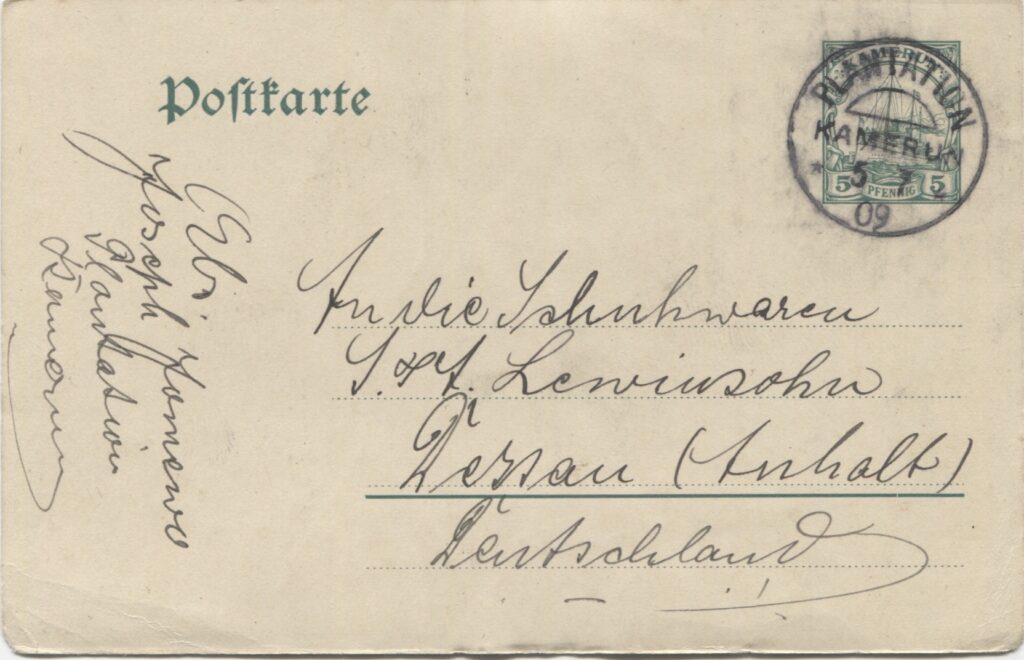 Postkarte
KAMERUN
PLANTATION
KAMERUN
* 5 3
09
5 PFENNIG 5
An die Schuhwaren
S. & J. Lewinsohn
Dessau (Anhalt)
Deutschland
Joseph
Plantation
Kamerun